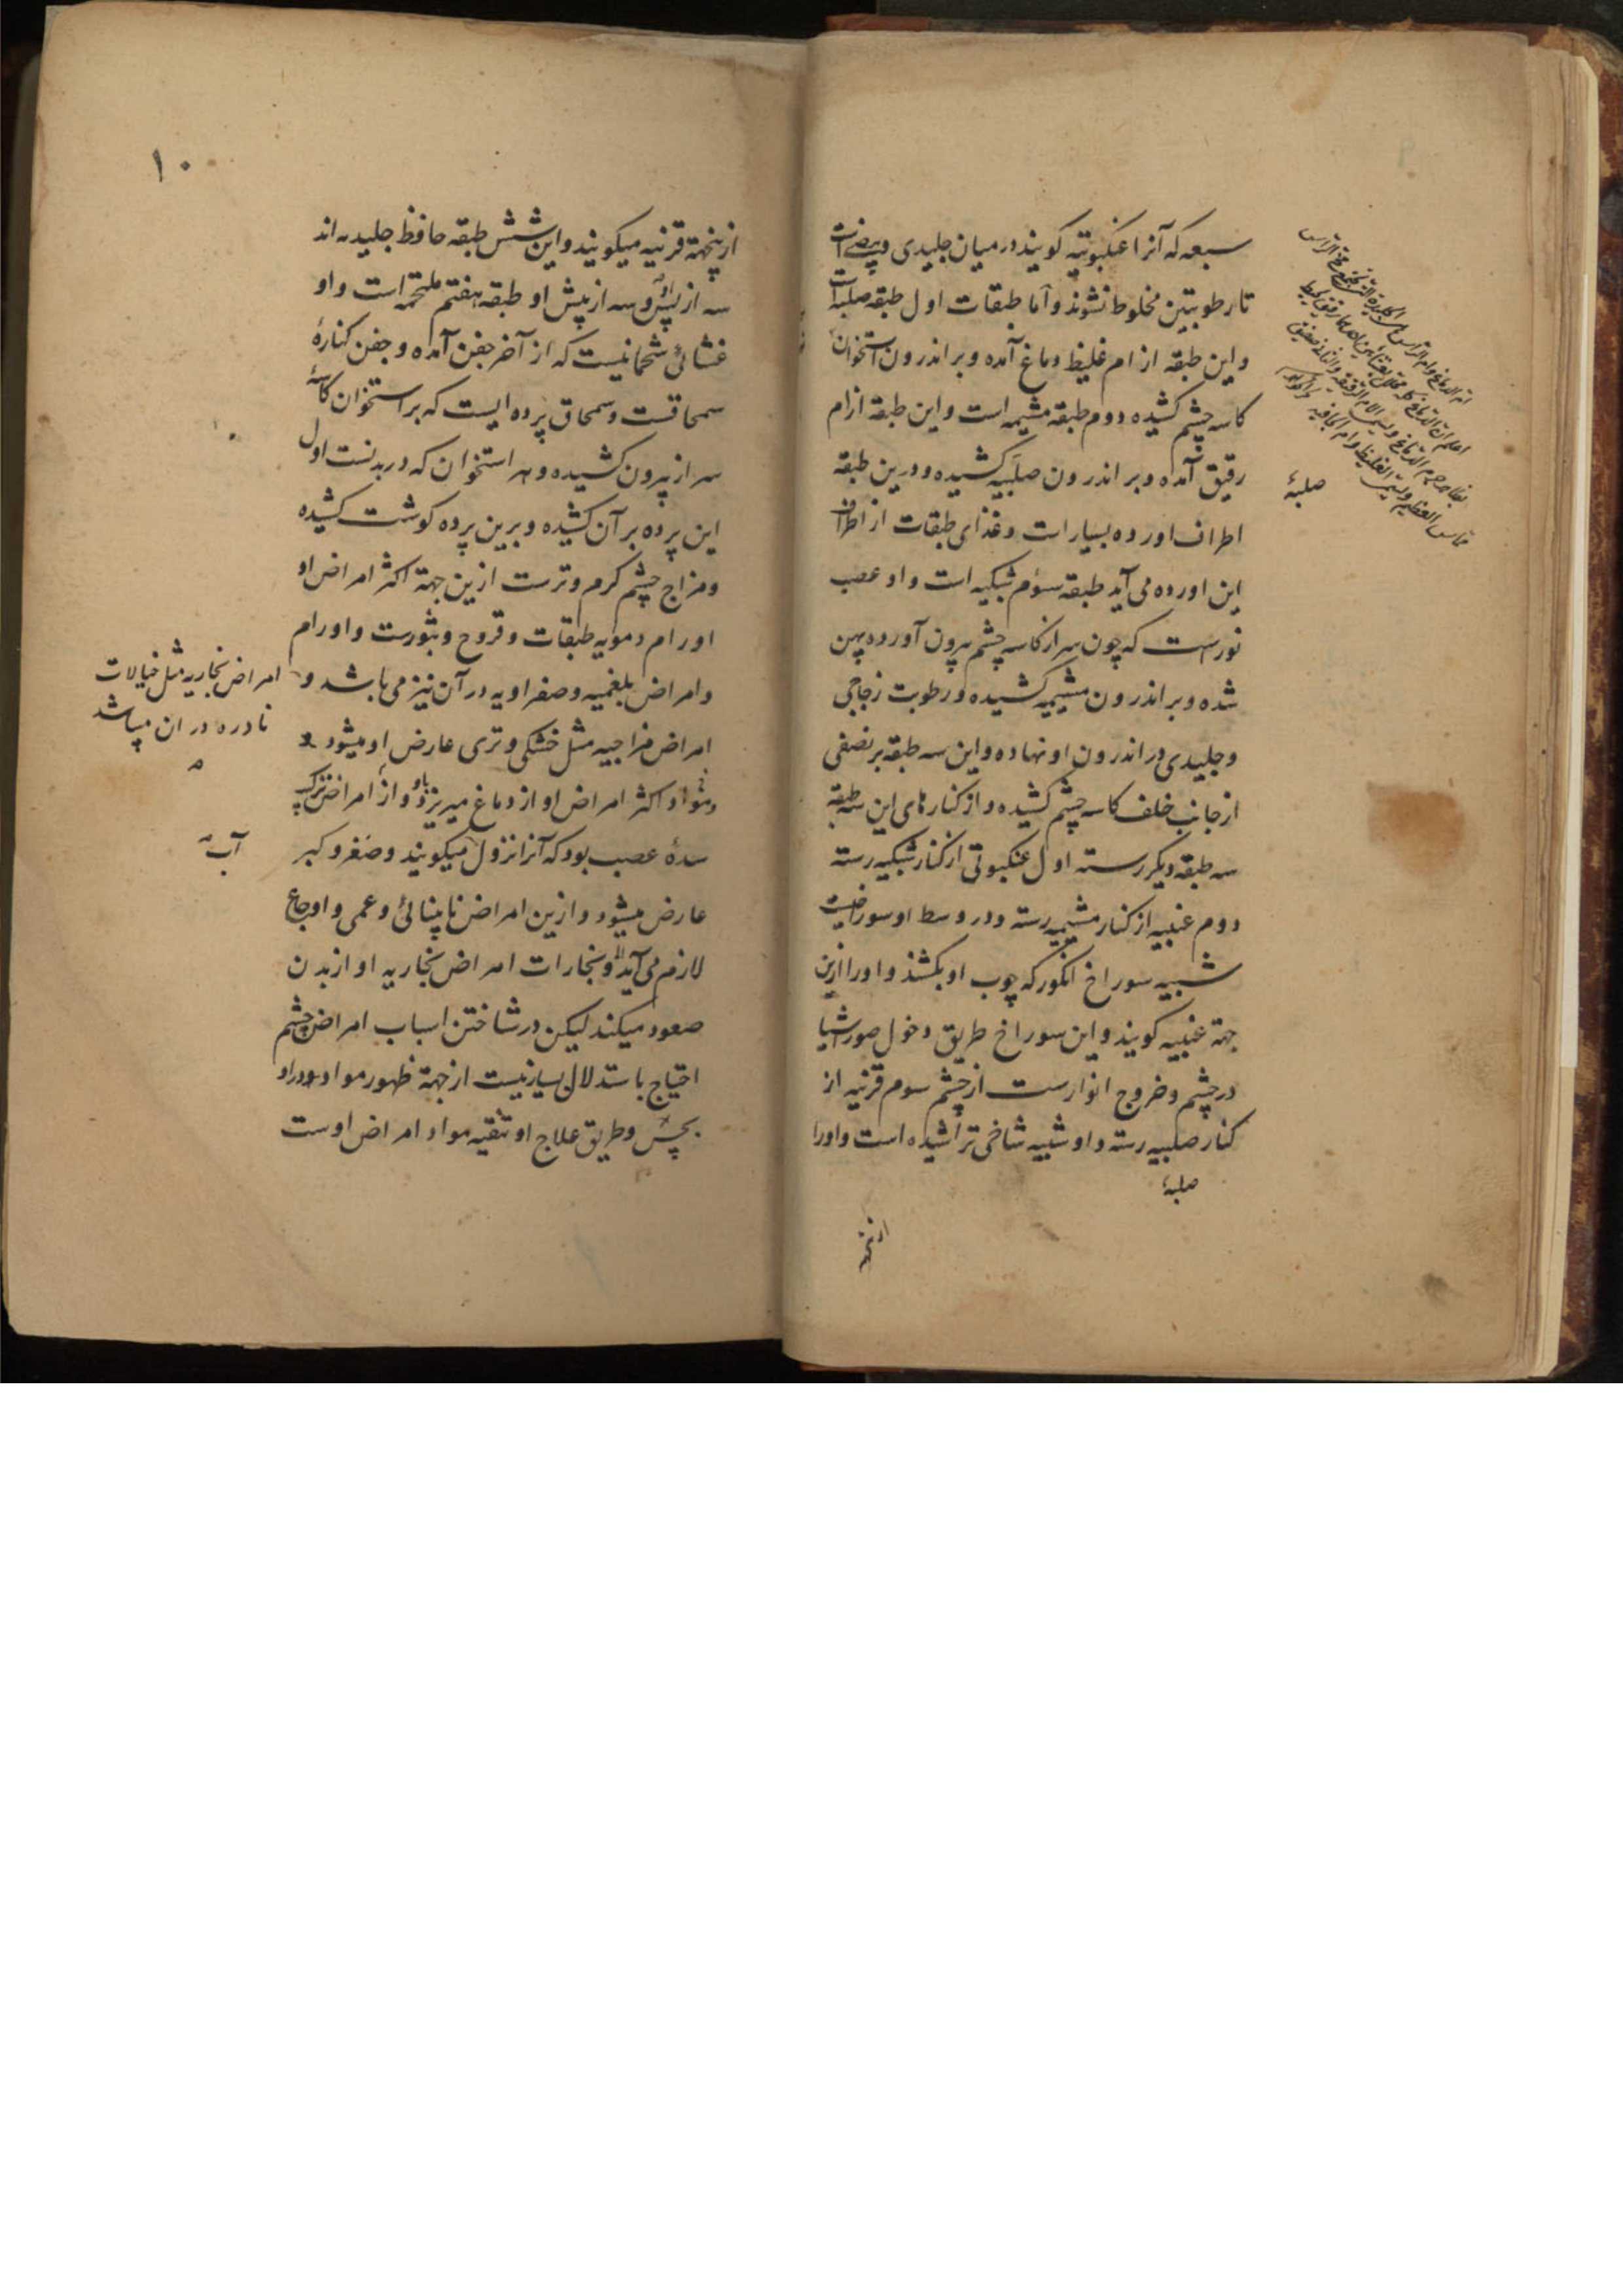 سبعه که آنرا عنکبوتیه کویند در میان جلیدی و بیضی است
تا رطوبتین مخلوط نشوند و اما طبقات اول طبقه صلبه است
و این طبقه از ام غلیظ دماغ آمده و بر اندرون استخوان
کاسه چشم کشیده دوم طبقه مشیمه است و این طبقه از ام
رقیق آمده و بر اندرون صلبیه کشیده و درین طبقه
اطراف اورده بسیار است و غذای طبقات از اطراف
این اورده می آید طبقه سوم شبکیه است و او عصب
نورست که چون سر از کاسه چشم بیرون آورده پهن
شده و بر اندرون مشیمیه کشیده و رطوبت زجاجی
و جلیدی در اندرون او نهاده و این سه طبقه بر نصفی
از جانب خلف کاسه چشم کشیده و از کنارهای این سه طبقه
سه طبقه دیکر رسته اول عنکبوتی از کنار شبکیه رسته
دوم عنبیه از کنار مشیمیه رسته و در وسط او سوراخیست
شبیه سوراخ انکور که چوب او بکشند و او را ازین
جهة عنبیه کویند و این سوراخ طریق دخول صور اشیا
در چشم و خروج انوارست از چشم سوم قرنیه از
کنار صلبیه رسته و او شبیه شاخی تراشیده است و اورا
صلبهٔ
ازینجهة
صلبهٔ
۱۰
ازینجهة قرنیه میکویند و این شش طبقه حافظ جلیدیه اند
سه از پس او و سه از پیش او طبقه هفتم ملتحمه است و او
غشائی شحمانیست که از آخر جفن آمده و جفن کنارهٔ
سمحاقست و سمحاق پرده ایست که بر استخوان کاسهٔ
سر از بیرون کشیده و هر استخوان که در بدنست اول
این پرده بر آن کشیده و برین پرده کوشت کشیده
و مزاج چشم کرم و ترست ازین جهة اکثر امراض او
اورام دمویه طبقات و قروح و بثورست و اورام
و امراض بلغمیه و صفراویه در آن نیز می باشد و
امراض بخاریه مثل خیالات
نادره در ان میباشد
امراض مزاجیه مثل خشکی و تری عارض او میشود و
و مواد اکثر امراض او از دماغ میریزد باو و از امراض ترکیب
سدهٔ عصب بود که آنرا نزول میکویند و صغر و کبر
آب
عارض میشود و ازین امراض نابینائی و عمی و اوجاع
لازم می آید و بخارات امراض بخاریه او از بدن
صعود میکند لیکن در شناختن اسباب امراض چشم
احتیاج باستدلال بسیار نیست از جهة ظهور مواد
بحس و طریق علاج او تنقیه مواد امراض اوست